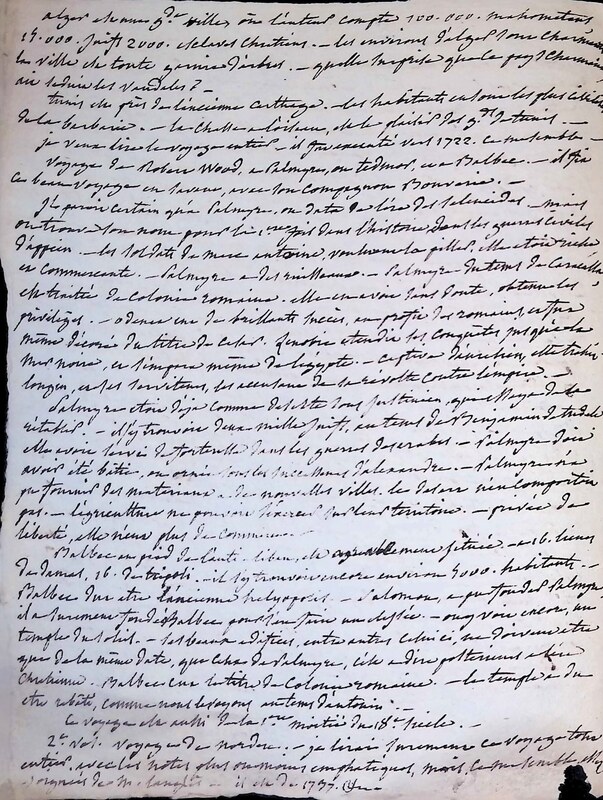 alger est une gde ville où l'auteur compte 100.000. mahométans
15.000 juifs 2000. esclaves chrétiens. — les environs d'alger sont charmans
la ville est toute garnie d'arbres. — quelle surprise que ce pays charmant
ait séduit les vandales? —
tunis est près de l'ancienne carthage. — les habitants en sont les plus civilisés
de la barbarie. — la chasse à l'oiseau, est le plaisir des gds de tunis. —
je veux lire le voyage entier. — il fut exécuté vers 1722. ce me semble. —
voyage de Robert Wood, à Palmyre, ou tedmor, et à Balbec. — il fit
ce beau voyage en savant, avec son compagnon Bouverie. —
il paroit certain qu'à Palmyre, on date de l'ère des seleucides. — mais
on trouve son nom pour la 1ere fois dans l'histoire dans les guerres civiles
d'appien. — les soldats de marc antoine, voulurent la piller, elle étoit riche
et commercante. — Palmyre a des ruisseaux. — Palmyre du tems de Caracalla
est traitée de colonie romaine. elle en avoit sans doute, obtenu les
privilèges. — odenat eut de brillants succès, au profit des romains et fut
même décoré du titre de cesar. Zenobie étendit ses conquêtes jusques à la
mer noire, et s'empara même de l'égypte. — captive d'aurelien, elle trahit
longin, et ses serviteurs, les accusant de sa révolte contre l'empire. —
Palmyre étoit déja comme déserte sous justinien, qui essaya de la
rétablir. — il s'y trouvoit deux mille juifs, au tems de Benjamin de tudele
elle avoit servi de forteresse dans les guerres des arabes. — Palmyre doit
avoir été bâtie, ou ornée sous les successeurs d'alexandre. — Palmyre n'a
pu fournir des materiaux à de nouvelles villes. le desert n'en comportoit
pas. — l'agriculture ne pouvoit s'exercer sur leur territoire. — privée de
liberté, elle n'eut plus de commerce. —
Balbec au pied de l'anti-liban, est agréablement située. — à 16. lieues
de damas, 16. de tripoli. — il s'y trouvoit encore environ 5000. habitants. —
Balbec dut être l'ancienne heliopolis. — Salomon, a pu fonder Palmyre
il a surement fondé Balbec pour en faire un — on y voit encore, un
temple du soleil. — les beaux édifices, entre autres celui ci, ne doivent être
que de la même date, que ceux de Palmyre, c'est à dire postérieurs à l'ère
chretienne. Balbec eut le titre de Colonie romaine. — le temple a du
être rebâti, comme nous le voyons au tems d'antonin. —
Ce voyage est aussi de la 1ere moitié du 18e siècle. —
2e Vol. voyage de norden. — je lirai surement ce voyage tout
entier, avec les notes plus ou moins emphatiques, mais, ce me semble, assez
soignées de m. langlès — il est de 1737. &c —